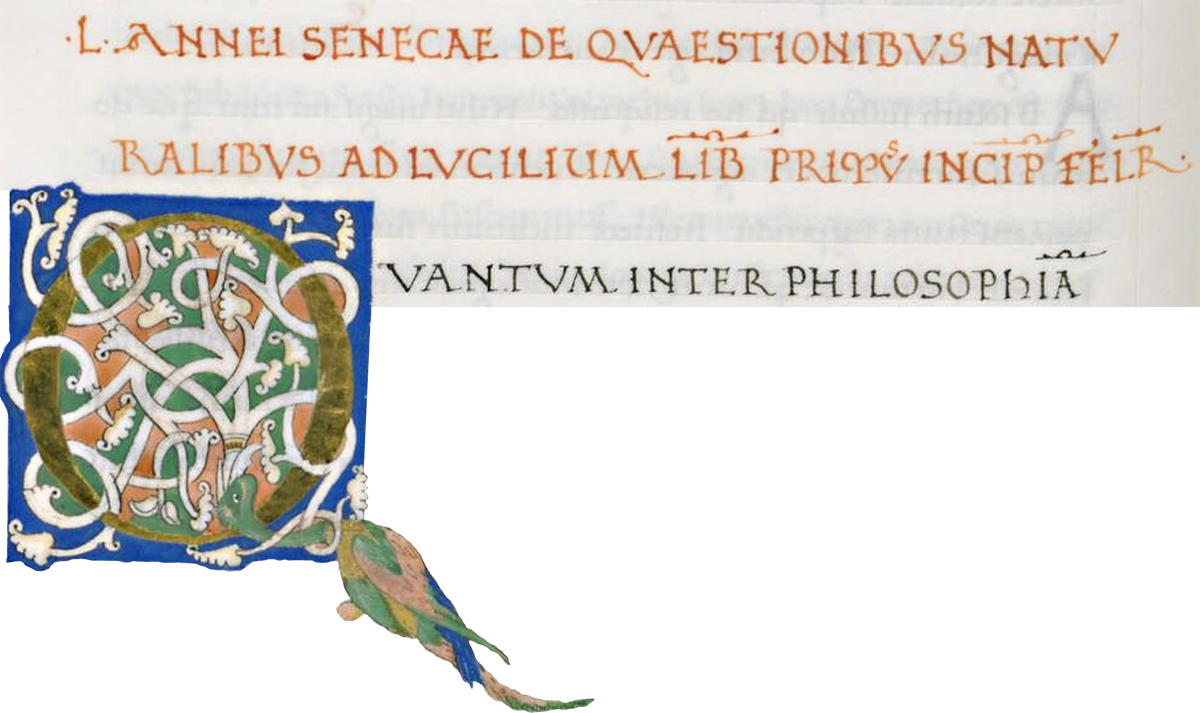 ·L· ANNEI SENECAE DE QVAESTIONIBVS NATV
RALIBVS AD LVCILIUM LIB̅ PRIMꝰ INCIP̅ FEL̅R̅·
QVANTVM INTER PHILOSOPhIA̅